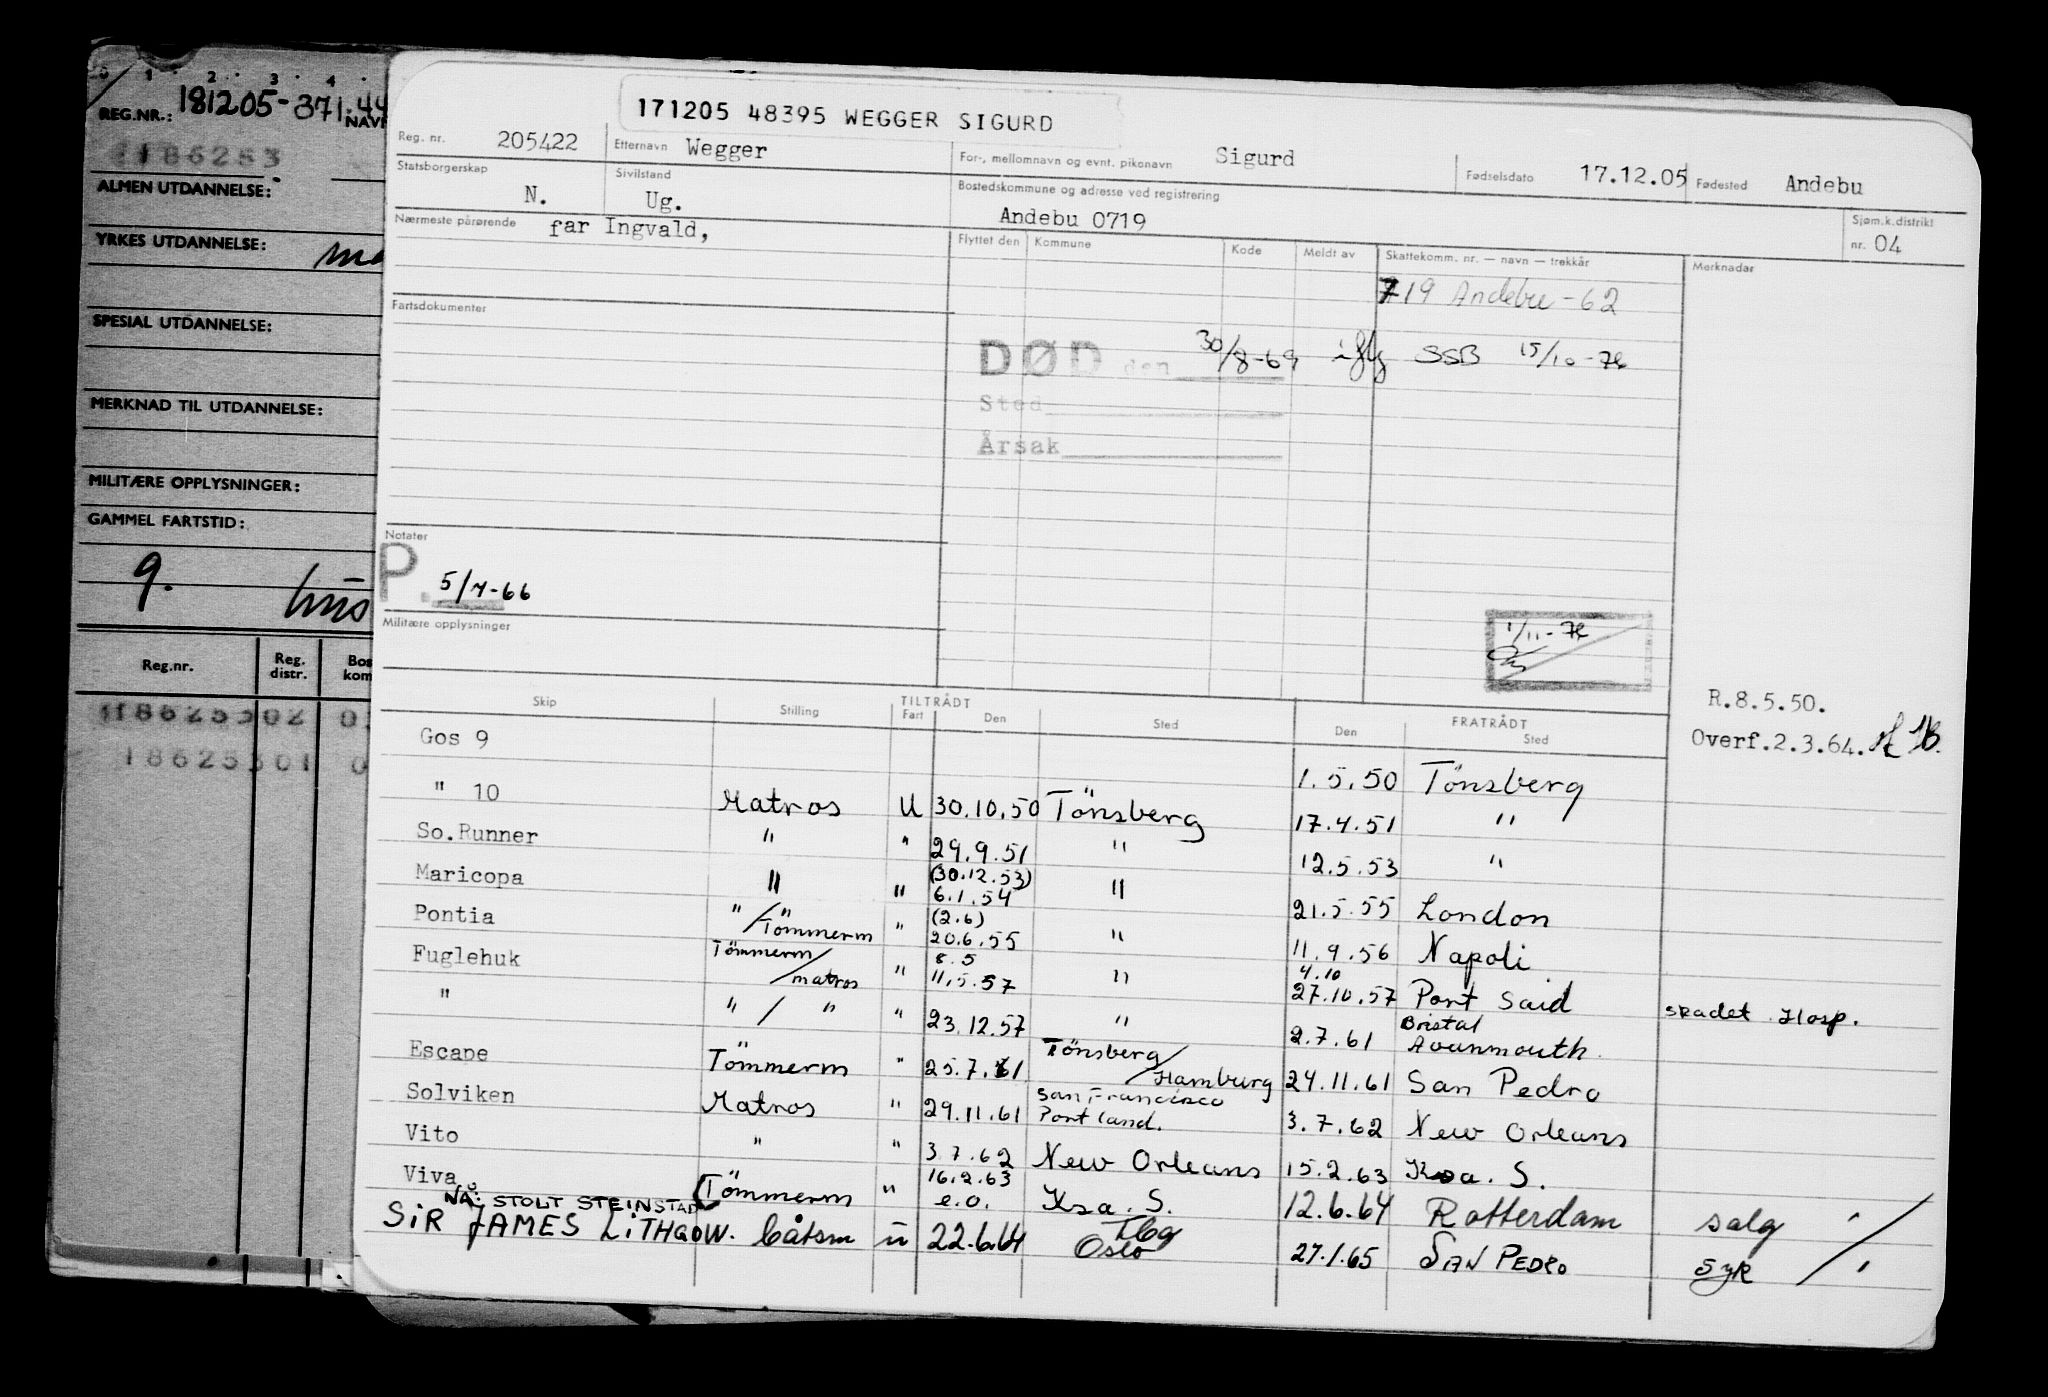 0 1 2 3 4
REG.NR.: 181205-371.44
NAVN
186253
ALMEN UTDANNELSE:
YRKES UTDANNELSE:
SPESIAL UTDANNELSE:
MERKNAD TIL UTDANNELSE:
MILITÆRE OPPLYSNINGER:
GAMMEL FARTSTID:
9.
Reg.nr. Reg. distr. Bos kom
18625302 0
18625301 0
171205 48395 WEGGER SIGURD
Reg. nr. 205422 Etternavn Wegger For-, mellomnavn og evnt. pikenavn Sigurd Fødselsdato 17.12.05 Fødested Andebu
Statsborgerskap N. Sivilstand Ug. Bostedskommune og adresse ved registrering Andebu 0719 Sjøm.k.distrikt nr. 04
Nærmeste pårørende far Ingvald,
Flyttet den Kommune Kode Meldt av Skattekomm. nr. — navn — trekkår Merknader
719 Andebu-62
Fartsdokumenter
DØD den 30/8-69 iflg SSB 15/10-76
Sted
Årsak
Notater
P. 5/7-66
1/11-76
Militære opplysninger
R.8.5.50.
Overf.2.3.64.
TILTRÅDT FRATRÅDT
Skip Stilling Fart Den Sted Den Sted
Gos 9 1.5.50 Tönsberg
" 10 Matros U 30.10.50 Tönsberg 17.4.51 "
So.Runner " " 29.9.51 " 12.5.53 "
Maricopa " " (30.12.53) 6.1.54 " 21.5.55 London
Pontia " / Tömmerm " (2.6) 20.6.55 " 11.9.56 Napoli
Fuglehuk Tömmerm / matros " 8.5 11.5.57 " 4.10 27.10.57 Port Said skadet Hosp.
" " / " " 23.12.57 " 2.7.61 Bristol Avonmouth.
Escape Tömmerm " 25.7.61 Tönsberg / Hamburg 24.11.61 San Pedro
Solviken Matros " 29.11.61 San Francisco Portland. 3.7.62 New Orleans
Vito " " 3.7.62 New Orleans 15.2.63 Ksa. S.
Viva Tömmerm " 16.2.63 e.o. Ksa. S. 12.6.64 Rotterdam salg
NÅ: STOLT STEINSTAD
SiR JAMES LiTHGOW. båtsm ü 22.6.64 Tbg Oslo 27.1.65 SAN PEDRO syk